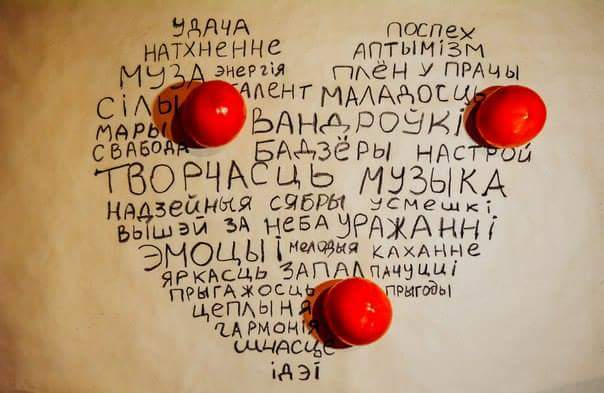 УДАЧА ПОСПЕХ
НАТХНЕННЕ АПТЫМІЗМ
МУЗА ЭНЕРГІЯ ПЛЁН У ПРАЦЫ
СІЛЫ ТАЛЕНТ МАЛАДОСЦЬ
МАРЫ ВАНДРОЎКІ
СВАБОДА БАДЗЁРЫ НАСТРОЙ
ТВОРЧАСЦЬ МУЗЫКА
НАДЗЕЙНЫЯ СЯБРЫ УСМЕШКІ
ВЫШЭЙ ЗА НЕБА УРАЖАННІ
ЭМОЦЫІ МЕЛОДЫЯ КАХАННЕ
ЯРКАСЦЬ ЗАПАЛ ПАЧУЦЦІ
ПРЫГАЖОСЦЬ ПРЫГОДЫ
ЦЕПЛЫНЯ
ГАРМОНІЯ
ШЧАСЦЕ
ІДЭІ